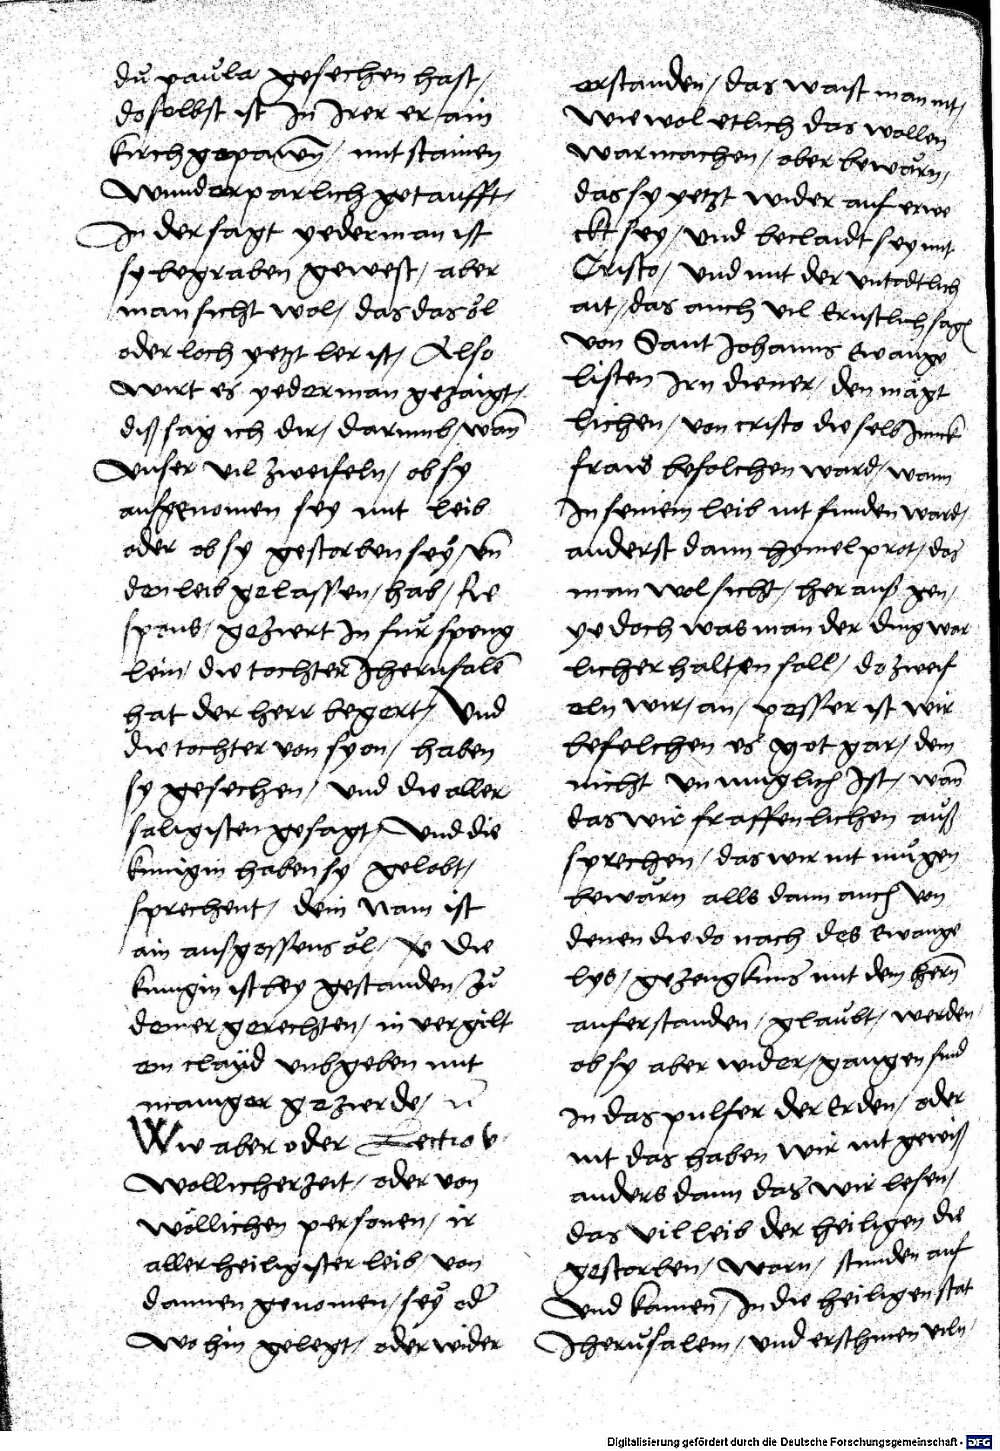 dŭ paŭla gesechen hast /
doselbst ist Jn Jrer er ain
kirch gepawēn / mit stainen
wunderparlich getaufft /
Jn der sagt yederman ist
sy begraben gewest / aber
man sicht wol / das das öl
oder loch yetzt ler ist / Also
wirt es yederman gezaigt /
diß sag ich dir / darumb / wan̄
vnser vil zweifeln / ob sy
aufgenomen sey mit leib
oder ob sy gestorben sey / vn̄
den leib gelassen / hab / Jre
spons / geziert Jn für speng
lein / die tochter Jherusalē
hat der herr begert / Vnd
die tochter von syon / haben
sy gesechen / vnd die aller
saligisten gesagt / Vnd die
kunigin haben sy gelobt /
sprechent / dein Nam ist
ain außgossens öl / Die
kunigin ist bey gestanden / zŭ
deiner gerechten / in vergilt
en clayd vmbgeben mit
maniger gezierde /
Wie aber oder Lectio v
wöllicher zeit / oder von
wöllichen personen / ir
aller heiligister leib / von
dannen genomen / sey od̄
wohin gelegt / oder wider
erstanden / das waist man nit /
wie wol etlich das wollen
war machen / oder bewärn /
das sy yetzt wider auf erwe
ckt sey / vnd beclaidt sey mit
Cristo / vnd mit der vntodtlich
ait / das auch vil Ernstlich sagē
von Sant Johanns Ewange
listen Jrn diener / den mägt
lichen / von cristo die selb Junck
fraw befolchen ward / wann
Jn seinem leib nit funden ward /
anderst dann hymelprot / des
man wol sicht / her auß gen /
ye doch was man der ding war
licher halten soll / do zweif
eln wir / an / pesser ist wir
befelchen es got gar / dem
nicht vn muglich Jst / wan̄
das wir fraffenlichen auß
sprechen / das wir nit mügen
bewärn alls dann auch von
denen die do nach des Ewange
lys / gezeugknus mit dem hern̄
auferstanden / glaŭbt / werden
ob sy aber wider / gangen sind
Jn das pulfer der Erden / oder
nit das haben wir nit gewiß
anders dann das wir lesen /
das vil leib der heiligen die
gestorben / warn / stunden auf
Vnd kamen / Jn die heiligen stat
Jherŭsalem / vnd erschinen viln /
Digitalisierung gefördert durch die Deutsche Forschungsgemeinschaft - DFG